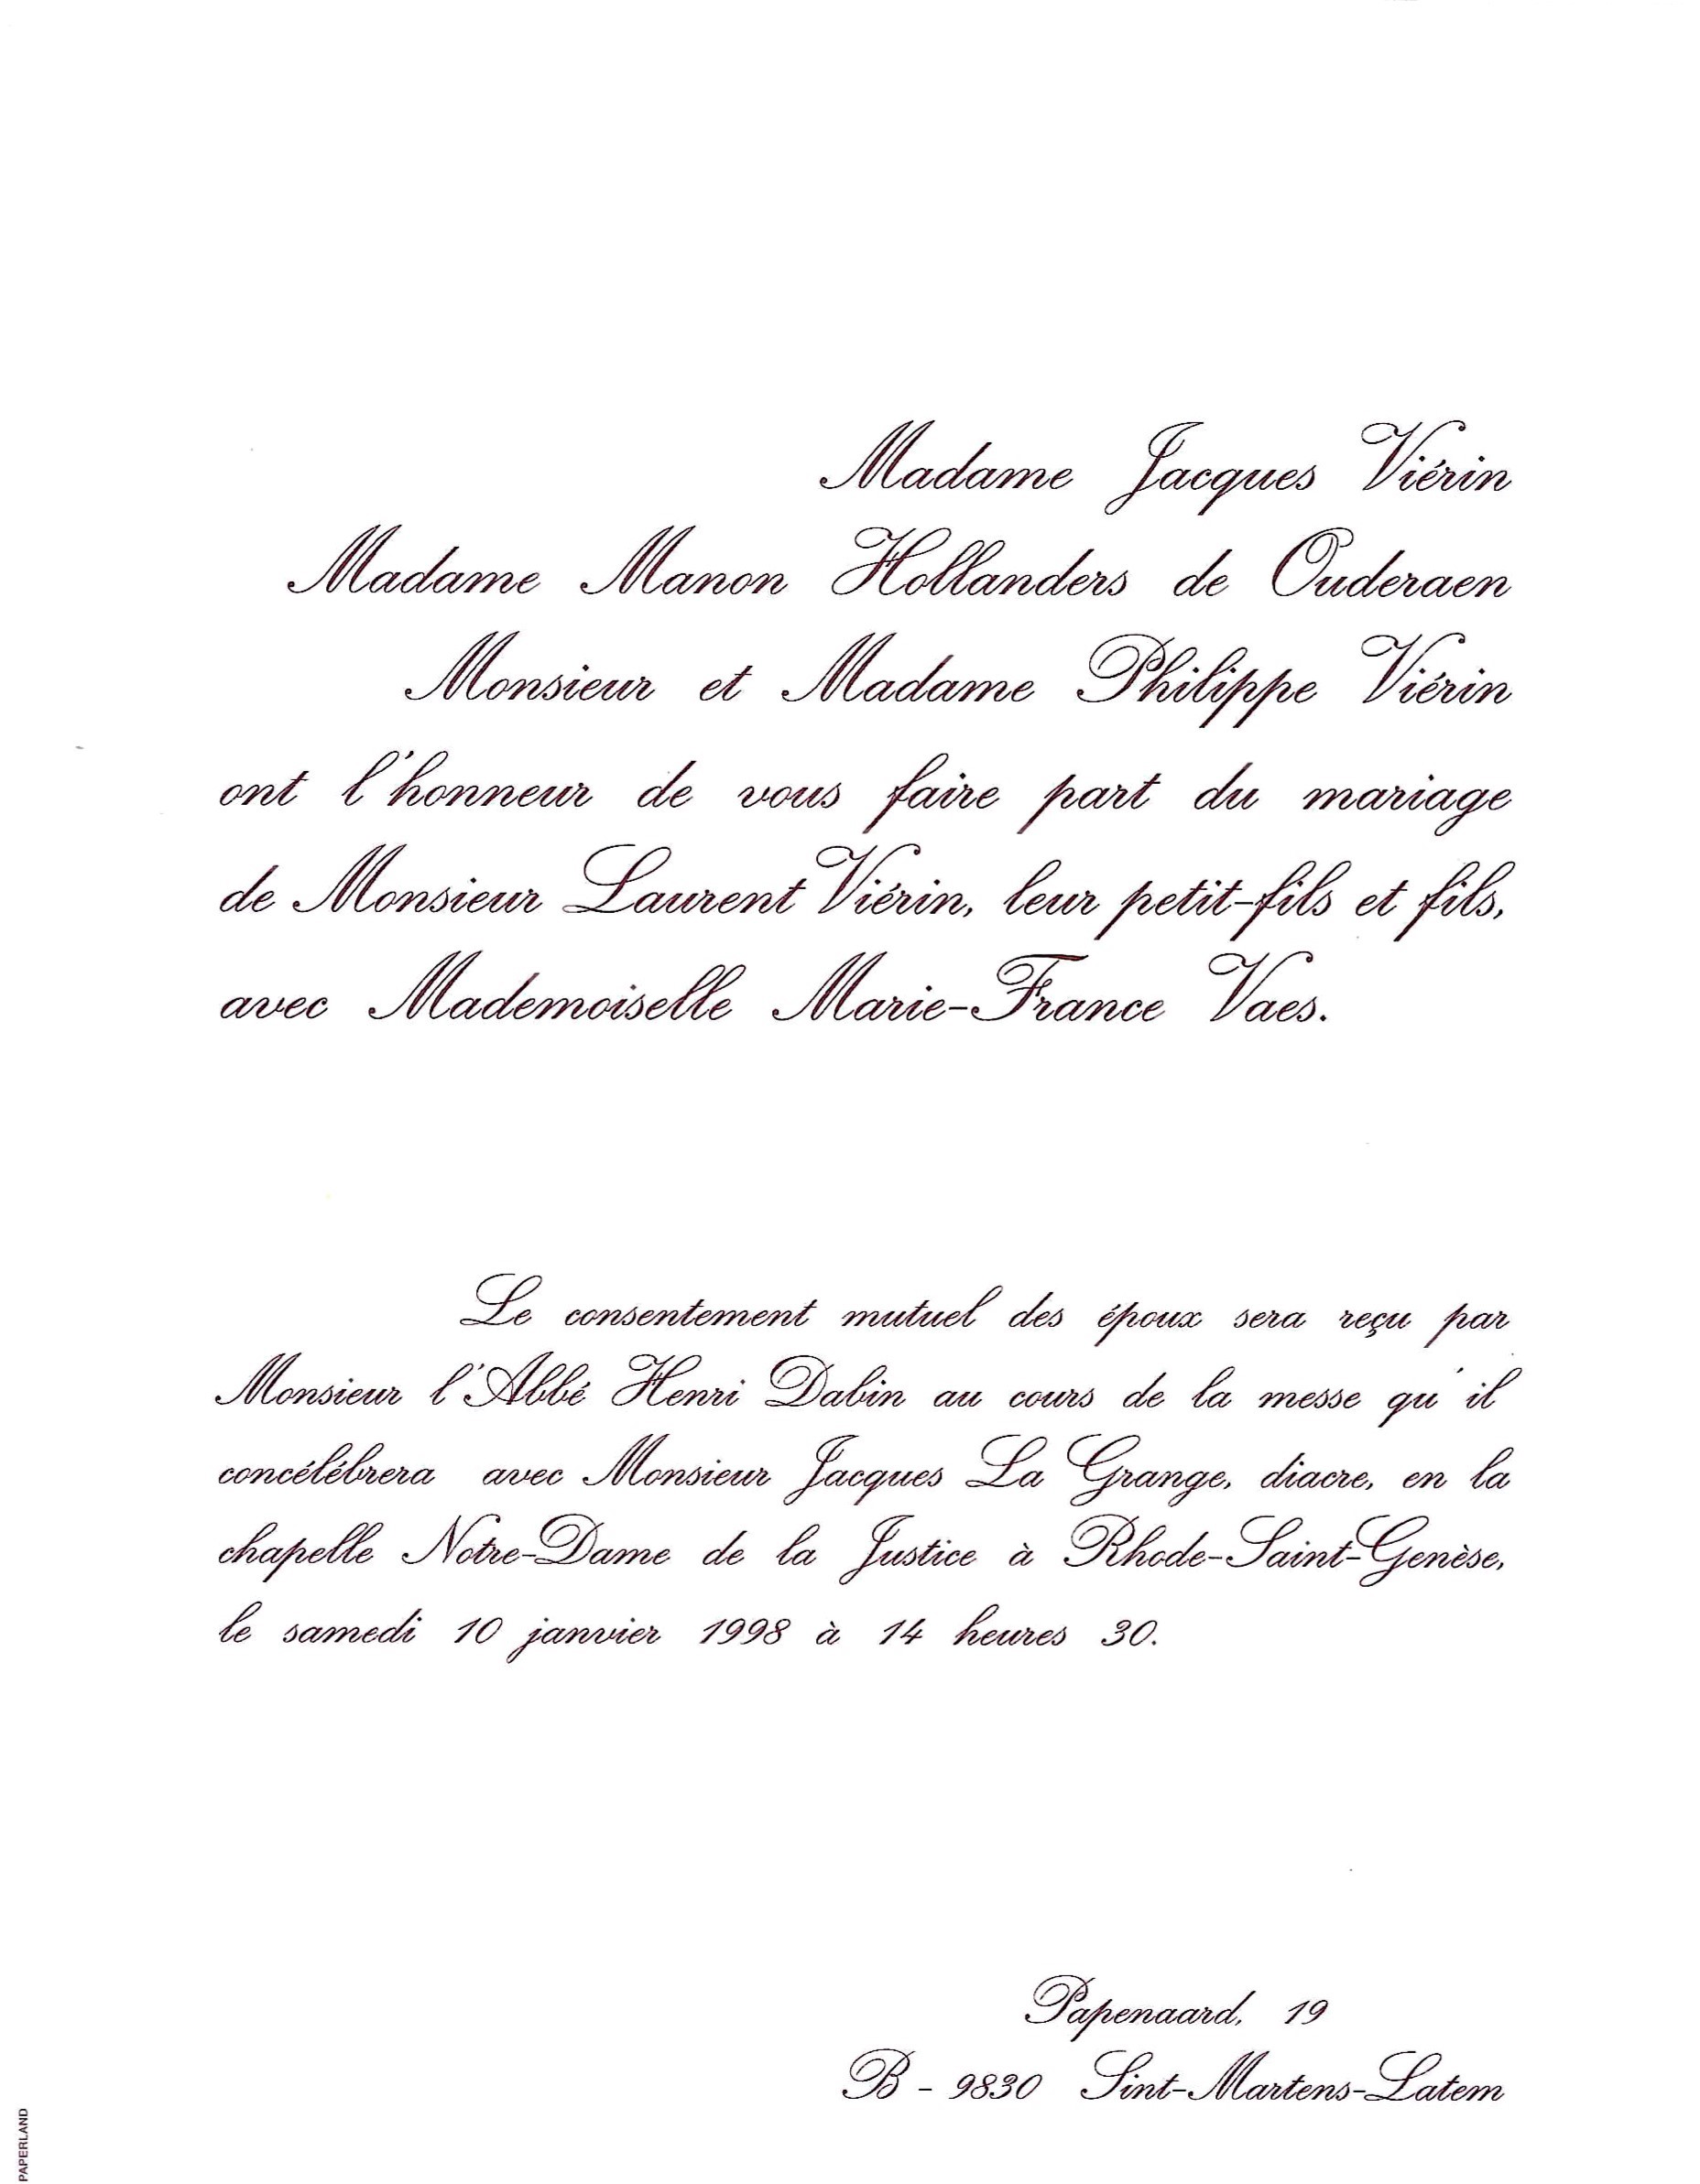 Madame Jacques Viérin
Madame Manon Hollanders de Ouderaen
Monsieur et Madame Philippe Viérin
ont l'honneur de vous faire part du mariage
de Monsieur Laurent Viérin, leur petit-fils et fils,
avec Mademoiselle Marie-France Vaes.
Le consentement mutuel des époux sera reçu par
Monsieur l'Abbé Henri Dabin au cours de la messe qu'il
concélébrera avec Monsieur Jacques La Grange, diacre, en la
chapelle Notre-Dame de la Justice à Rhode-Saint-Genèse,
le samedi 10 janvier 1998 à 14 heures 30.
Papenaard, 19
B - 9830 Sint-Martens-Latem
PAPERLAND